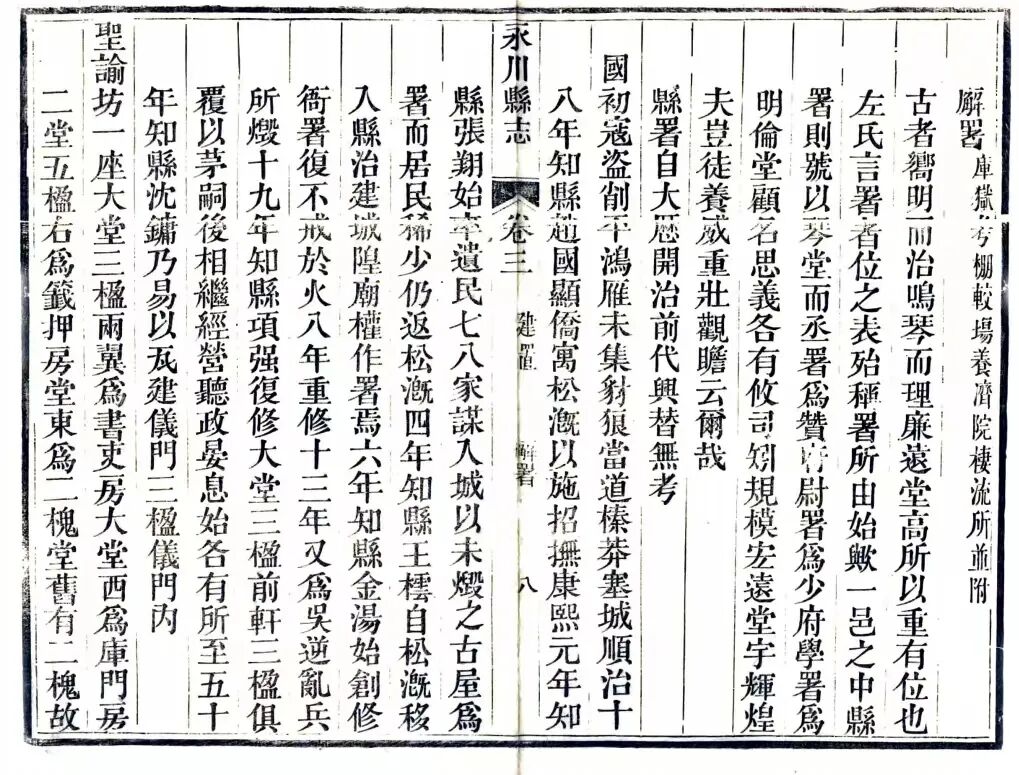 廨署庫獄考棚較場養濟院棲流所並附
古者嚮明而治鳴琴而理廉遠堂高所以重有位也
左氏言署者位之表殆稱署所由始歟一邑之中縣
署則號以琴堂而丞署爲贊府尉署爲少府學署爲
明倫堂顧名思義各有攸司矧規模宏遠堂宇輝煌
夫豈徒養威重壯觀瞻云爾哉
縣署自大歷開治前代興替無考
國初寇盜削平鴻雁未集豺狼當道榛莽塞城順治十
八年知縣趙國顯僑寓松溉以施招撫康熙元年知
永川縣志 卷三 建置 廨署 八
縣張翔始率遺民七八家謀入城以未燬之古屋爲
署而居民稀少仍返松溉四年知縣王樰自松溉移
入縣治建城隍廟權作署焉六年知縣金湯始創修
衙署復不戒於火八年重修十三年又爲吳逆亂兵
所燬十九年知縣項强復修大堂三楹前軒三楹俱
覆以茅嗣後相繼經營聽政晏息始各有所至五十
年知縣沈鏞乃易以瓦建儀門三楹儀門內
聖諭坊一座大堂三楹兩翼爲書吏房大堂西爲庫門房
二堂五楹右爲籤押房堂東爲二槐堂舊有二槐故